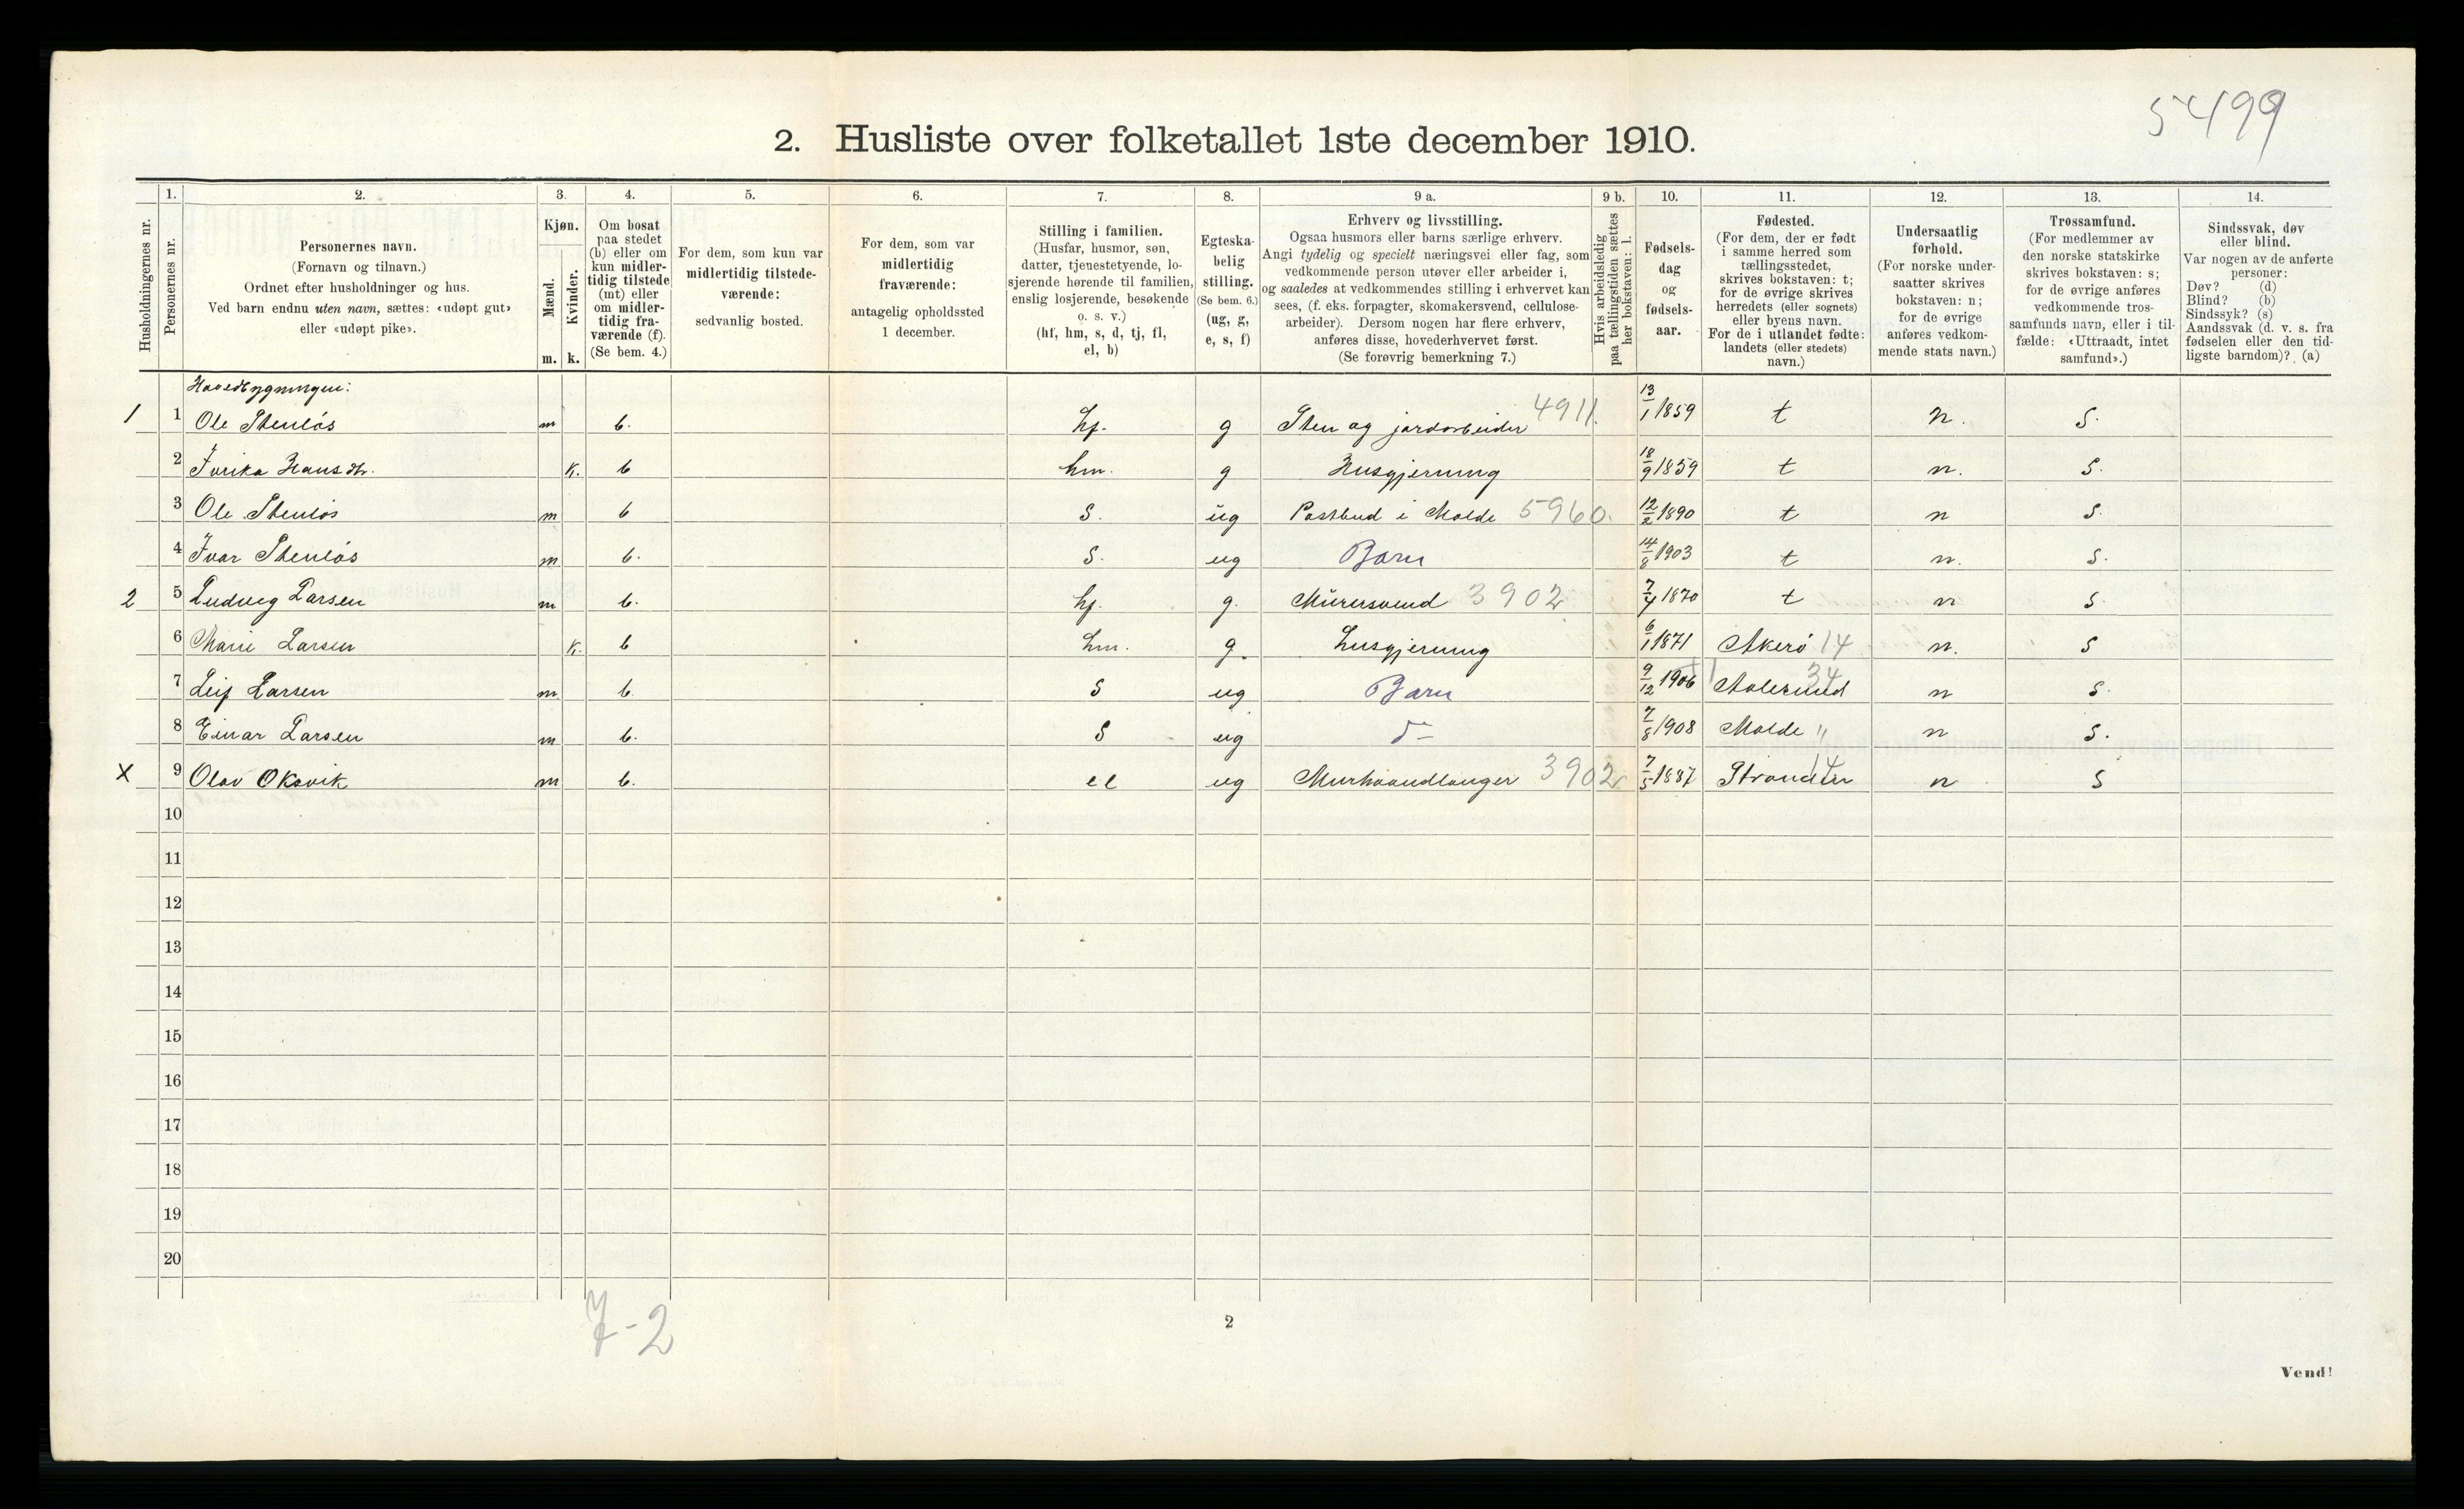 5499
2. Husliste over folketallet 1ste december 1910.
Husholdningernes nr.
1.
Personernes nr.
2.
Personernes navn.
(Fornavn og tilnavn.)
Ordnet efter husholdninger og hus.
Ved barn endnu uten navn, sættes: «udøpt gut»
eller «udøpt pike».
3.
Kjøn.
Mænd.
Kvinder.
m. k.
4.
Om bosat
paa stedet
(b) eller om
kun midler-
tidig tilstede
(mt) eller
om midler-
tidig fra-
værende (f).
(Se bem. 4.)
5.
For dem, som kun var
midlertidig tilstede-
værende:
sedvanlig bosted.
6.
For dem, som var
midlertidig
fraværende:
antagelig opholdssted
1 december.
7.
Stilling i familien.
(Husfar, husmor, søn,
datter, tjenestetyende, lo-
sjerende hørende til familien,
enslig losjerende, besøkende
o. s. v.)
(hf, hm, s, d, tj, fl,
el, b)
8.
Egteska-
belig
stilling.
(Se bem. 6.)
(ug, g,
e, s, f)
9 a.
Erhverv og livsstilling.
Ogsaa husmors eller barns særlige erhverv.
Angi tydelig og specielt næringsvei eller fag, som
vedkommende person utøver eller arbeider i,
og saaledes at vedkommendes stilling i erhvervet kan
sees, (f. eks. forpagter, skomakersvend, cellulose-
arbeider). Dersom nogen har flere erhverv,
anføres disse, hovederhvervet først.
(Se forøvrig bemerkning 7.)
9 b.
Hvis arbeidsledig
paa tællingstiden sættes
her bokstaven: l.
10.
Fødsels-
dag
og
fødsels-
aar.
11.
Fødested.
(For dem, der er født
i samme herred som
tællingsstedet,
skrives bokstaven: t;
for de øvrige skrives
herredets (eller sognets)
eller byens navn.
For de i utlandet fødte:
landets (eller stedets)
navn.)
12.
Undersaatlig
forhold.
(For norske under-
saatter skrives
bokstaven: n;
for de øvrige
anføres vedkom-
mende stats navn.)
13.
Trossamfund.
(For medlemmer av
den norske statskirke
skrives bokstaven: s;
for de øvrige anføres
vedkommende tros-
samfunds navn, eller i til-
fælde: «Uttraadt, intet
samfund».)
14.
Sindssvak, døv
eller blind.
Var nogen av de anførte
personer:
Døv? (d)
Blind? (b)
Sindssyk? (s)
Aandssvak (d. v. s. fra
fødselen eller den tid-
ligste barndom)? (a)
Hovedbygningen:
1 1 Ole Stenløs m b. hf. g Sten og jordarbeider 4911. 13/1 1859 t n. s.
2 Hansdtr. k. b hm. g Husgjerning 18/9 1859 t n. s.
3 Ole Stenløs m b s. ug Postbud i Molde 5960. 12/2 1890 t n s.
4 Ivar Stenløs m b. s. ug Barn 14/8 1903 t n. s.
2 5 Ludvig Larsen m b. hf. g. Murersvend 3902 7/4 1870 t n s.
6 Marie Larsen k. b hm. g. husgjerning 6/1 1871 Akerö 14 n. s
7 Leif Larsen m. b. s ug Barn 9/12 1906 Aalesund 34 n s.
8 Einar Larsen m b. s ug d- 7/8 1908 Molde " n s.
x 9 Olav Oksvik m b. el ug Murhaandlanger 3902. 7/5 1887 Stranden 14 n s
10
11
12
13
14
15
16
17
18
19
20
7-2
2
Vend!